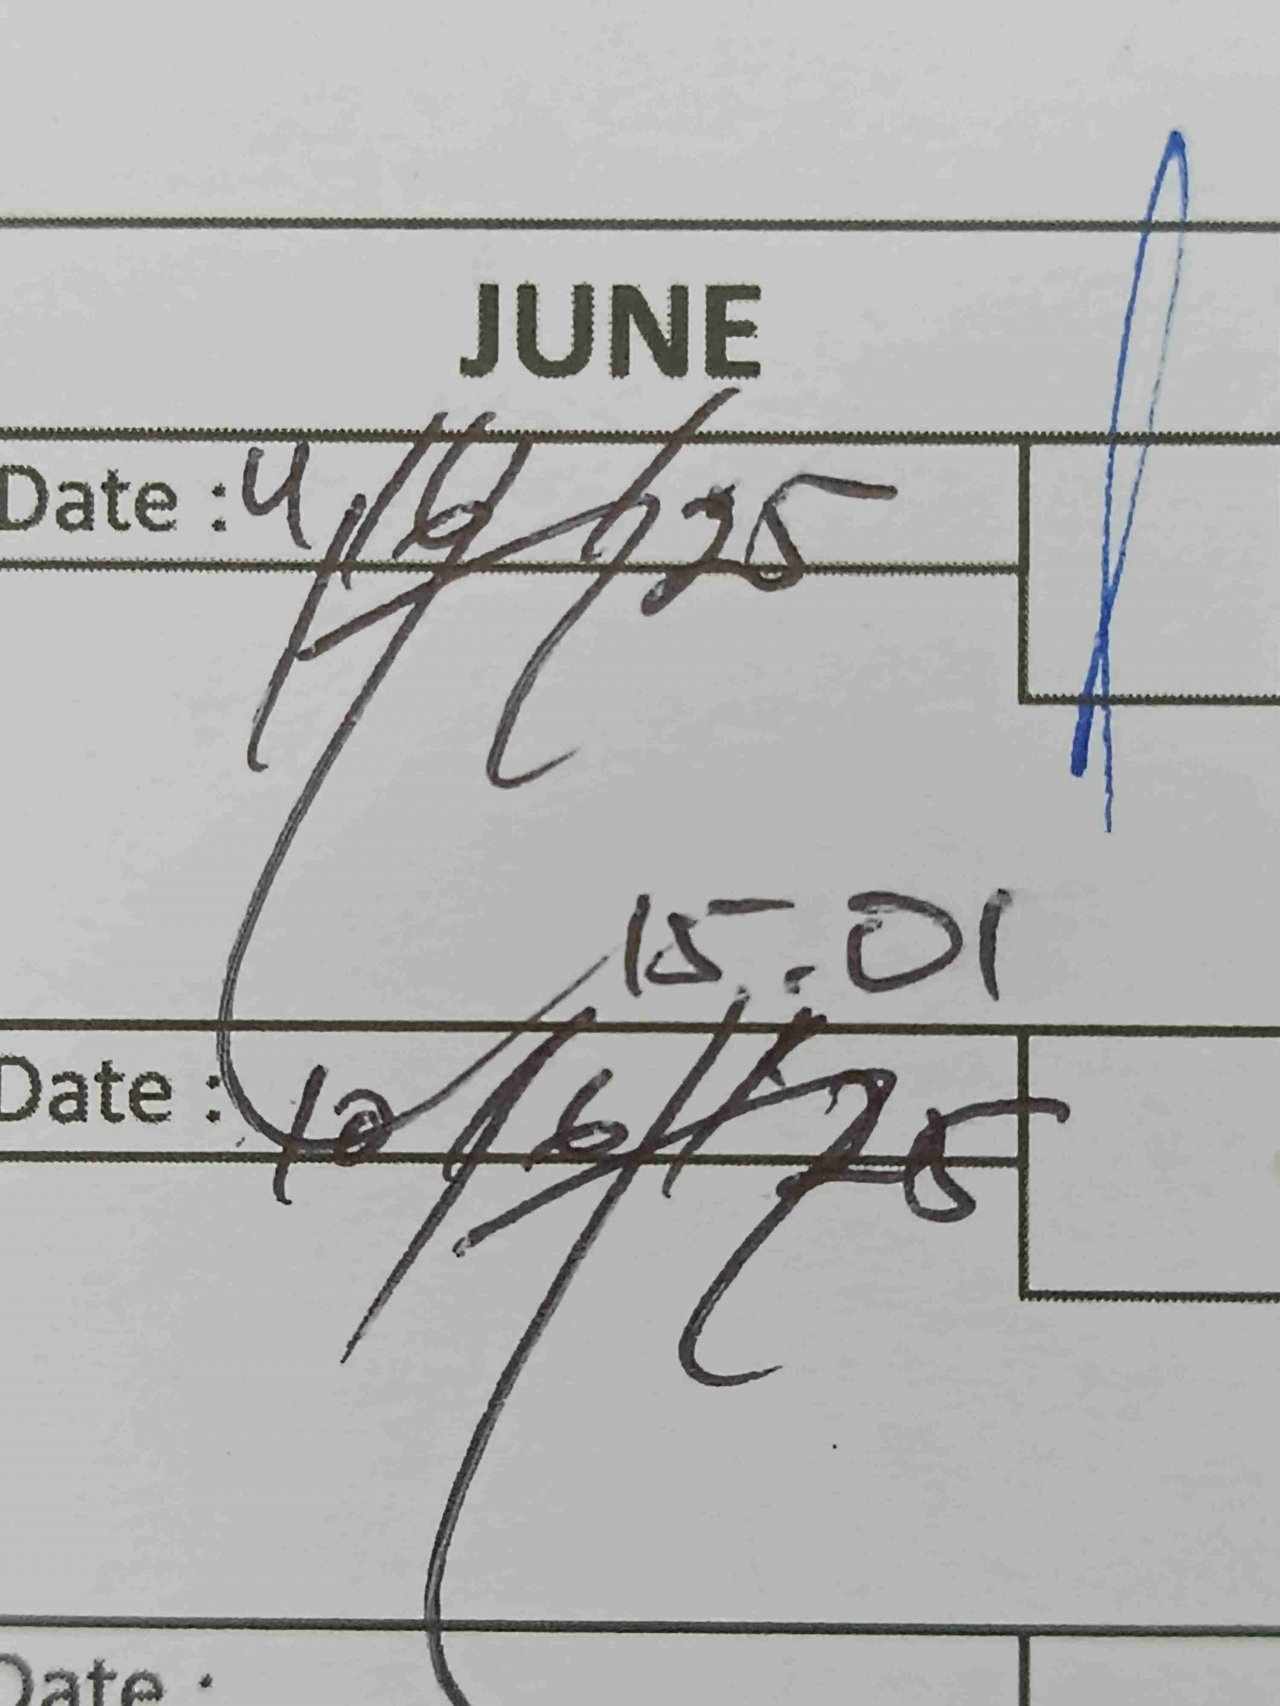 JUNE
Date : 4/6/25
15:01
Date : 10/6/25
Date :